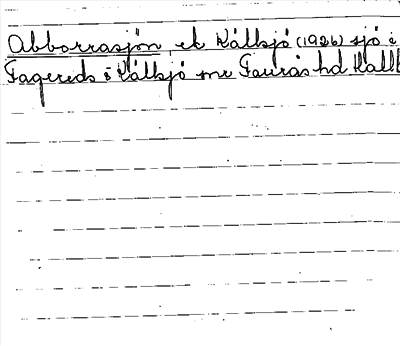 Abborrasjön, ek Källsjö (1926) sjö i
Fagereds o Källsjö snr Faurås hd Hall